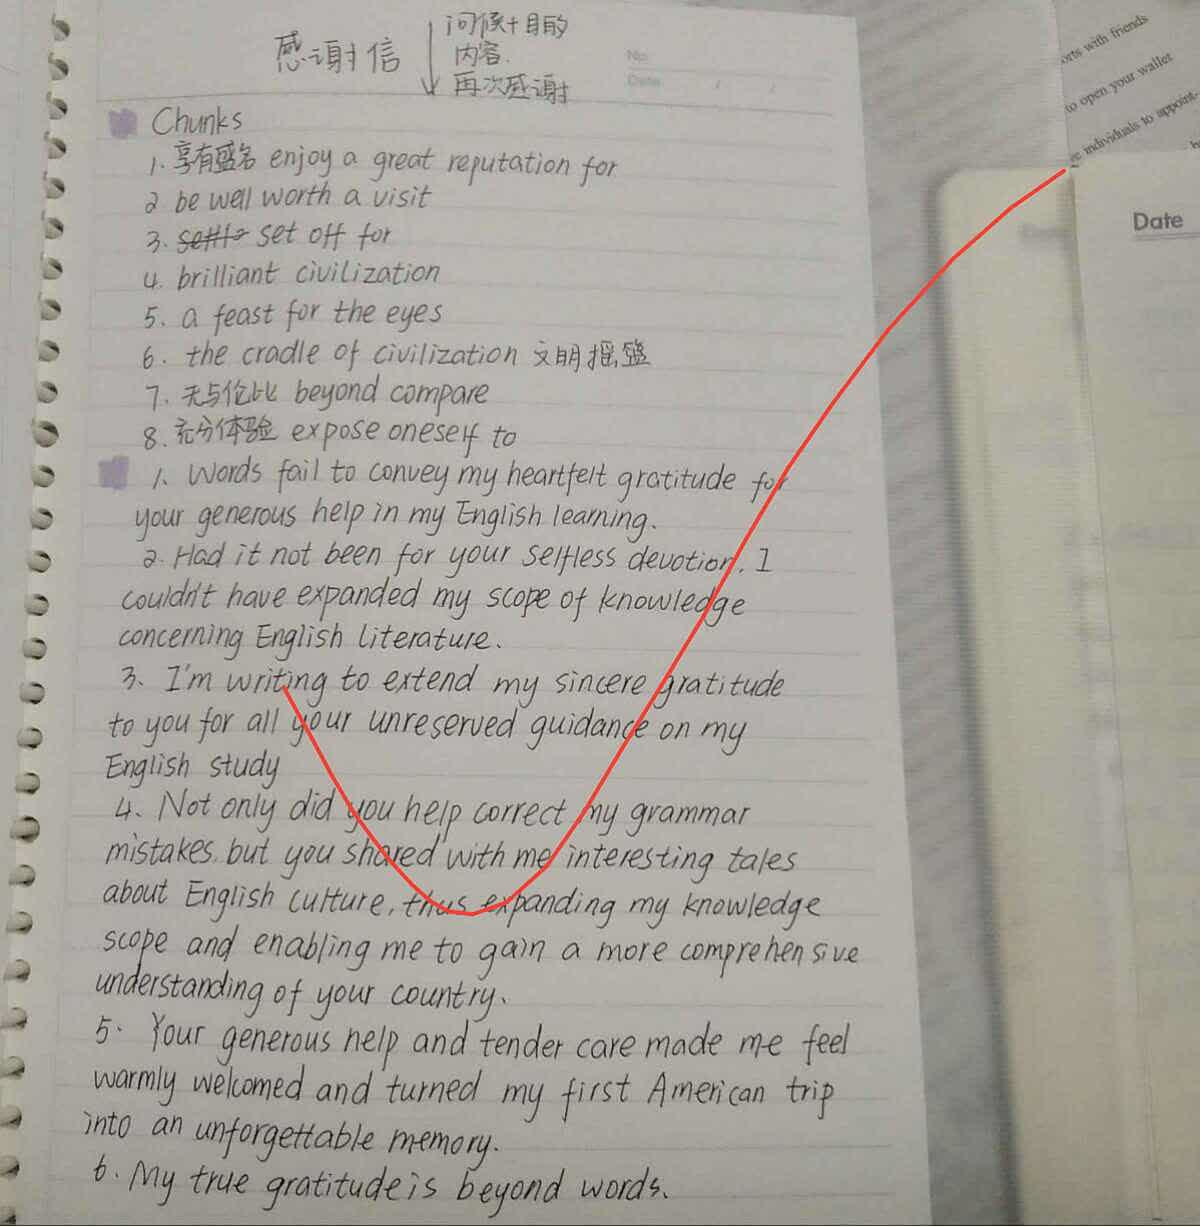 感谢信
问候+目的
内容.
再次感谢
No.
Date
Chunks
1. 享有盛名 enjoy a great reputation for
2 be well worth a visit
3. set off for
4. brilliant civilization
5. a feast for the eyes
6. the cradle of civilization 文明摇篮
7. 无与伦比 beyond compare
8. 充分体验 expose oneself to
1. Words fail to convey my heartfelt gratitude for
your generous help in my English learning.
2. Had it not been for your selfless devotion, I
couldn't have expanded my scope of knowledge
concerning English literature.
3. I'm writing to extend my sincere gratitude
to you for all your unreserved guidance on my
English study
4. Not only did you help correct my grammar
mistakes, but you shared with me interesting tales
about English culture, thus expanding my knowledge
scope and enabling me to gain a more comprehensive
understanding of your country.
5. Your generous help and tender care made me feel
warmly welcomed and turned my first American trip
into an unforgettable memory.
6. My true gratitude is beyond words.
orts with friends
to open your wallet
individuals to appoint-
Date